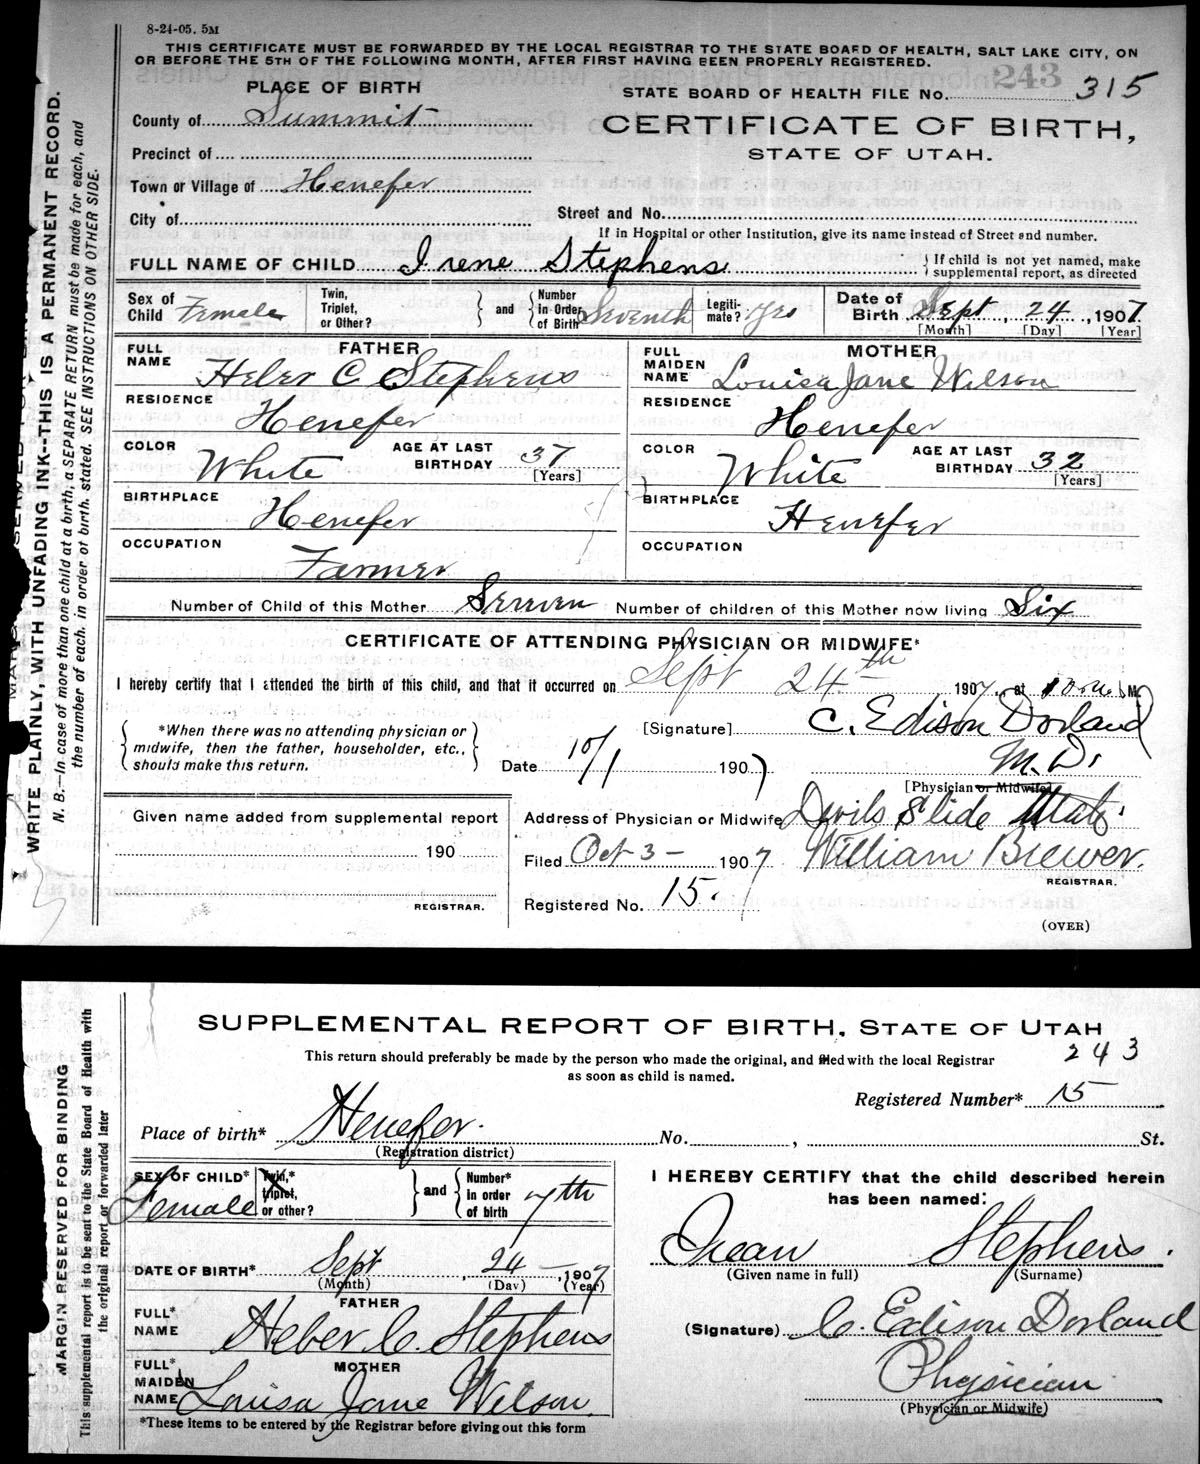 8-24-05. 5M
THIS CERTIFICATE MUST BE FORWARDED BY THE LOCAL REGISTRAR TO THE STATE BOARD OF HEALTH, SALT LAKE CITY, ON
OR BEFORE THE 5TH OF THE FOLLOWING MONTH, AFTER FIRST HAVING BEEN PROPERLY REGISTERED.
PLACE OF BIRTH
243
STATE BOARD OF HEALTH FILE No. 315
County of Summit
CERTIFICATE OF BIRTH,
STATE OF UTAH.
Precinct of
Town or Village of Henefer
City of
Street and No.
If in Hospital or other Institution, give its name instead of Street and number.
FULL NAME OF CHILD Irene Stephens { If child is not yet named, make supplemental report, as directed
Sex of Child Female Twin, Triplet, or Other? } and { Number In Order of Birth Seventh Legiti- mate? Yes Date of Birth Sept, 24, 1907
[Month] [Day] [Year]
FATHER
FULL NAME Heber C Stephens
RESIDENCE Henefer
COLOR White AGE AT LAST BIRTHDAY 37 [Years]
BIRTHPLACE Henefer
OCCUPATION Farmer
MOTHER
FULL MAIDEN NAME Louisa Jane Wilson
RESIDENCE Henefer
COLOR White AGE AT LAST BIRTHDAY 32 [Years]
BIRTHPLACE Henefer
OCCUPATION
Number of Child of this Mother Sereven Number of children of this Mother now living Six
CERTIFICATE OF ATTENDING PHYSICIAN OR MIDWIFE*
I hereby certify that I attended the birth of this child, and that it occurred on Sept 24th 1907, at M.
*When there was no attending physician or
midwife, then the father, householder, etc.,
should make this return.
[Signature] C. Edison Dorland
M.D.
Date 10/1 1907
[Physician or Midwife]
Given name added from supplemental report
190
REGISTRAR.
Address of Physician or Midwife Devils Slide Utah.
Filed Oct 3- 1907 William Brewer.
REGISTRAR.
Registered No. 15.
(OVER)
WRITE PLAINLY, WITH UNFADING INK--THIS IS A PERMANENT RECORD.
N. B.—In case of more than one child at a birth, a SEPARATE RETURN must be made for each, and
the number of each, in order of birth, stated. SEE INSTRUCTIONS ON OTHER SIDE.
SUPPLEMENTAL REPORT OF BIRTH, STATE OF UTAH
This return should preferably be made by the person who made the original, and filed with the local Registrar
as soon as child is named.
243
Registered Number* 15
Place of birth* Henefer. No. , St.
(Registration district)
SEX OF CHILD* Female Twin,* triplet, or other? } and { Number* in order of birth 7th
DATE OF BIRTH* Sept, 24, 1907
(Month) (Day) (Year)
FATHER
FULL* NAME Heber C. Stephens
MOTHER
FULL* MAIDEN NAME Louisa Jane Wilson.
*These items to be entered by the Registrar before giving out this form
I HEREBY CERTIFY that the child described herein
has been named:
Irean Stephens.
(Given name in full) (Surname)
(Signature) C. Edison Dorland
Physician
(Physician or Midwife)
MARGIN RESERVED FOR BINDING
This supplemental report is to be sent to the State Board of Health with
the original report or forwarded later